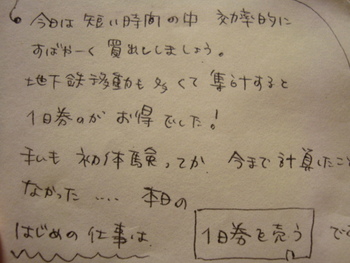 今日は 短い時間の中 効率的に
すばやーく 買れとしましょう。
地下鉄移動も多くて 集計すると
1日券のが お得でした!
私も 初体験ってか 今まで 計算したこと
なかった .... 本日の
はじめの 仕事は 1日券を売う で